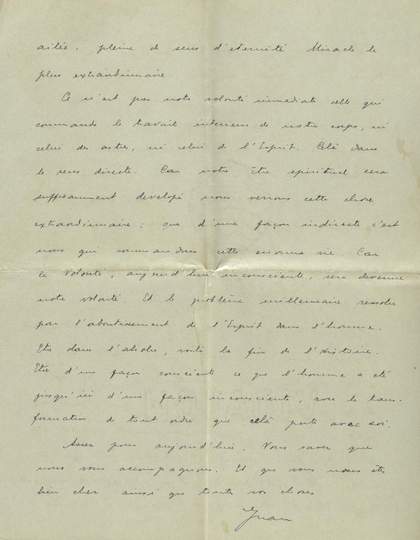 ailée, pleine de sens d'eternité Miracle le
plus extraordinaire
Ce n'est pas notre volonté immediate celle qui
commande le travail interieur de notre corps, ni
celui des astres, ni celui de l'Esprit. Celà dans
le sens directe. Car notre Etre spirituel sera
suffisamment developé nous verrons cette chose
extraordinaire: que d'une façon indirecte c'est
nous qui commandons cette enorme vie. Car
la Volonté, aujourd'hui inconsciente, sera devenue
notre volonté Et le problème millenaire resolu
par l'aboutissement de l'Esprit dans l'homme.
Etre dans l'absolu, voilà la fin de l'Histoire.
Etre d'une façon consciente ce que l'homme a été
jusqu'ici d'une façon inconsciente, avec la trans-
formation de tout ordre que celà porte avec soi.
Assez pour aujourd'hui. Vous savez que
nous vous accompagnons. Et que vous nous êtes
bien cher ainsi que toutes vos choses
Juan